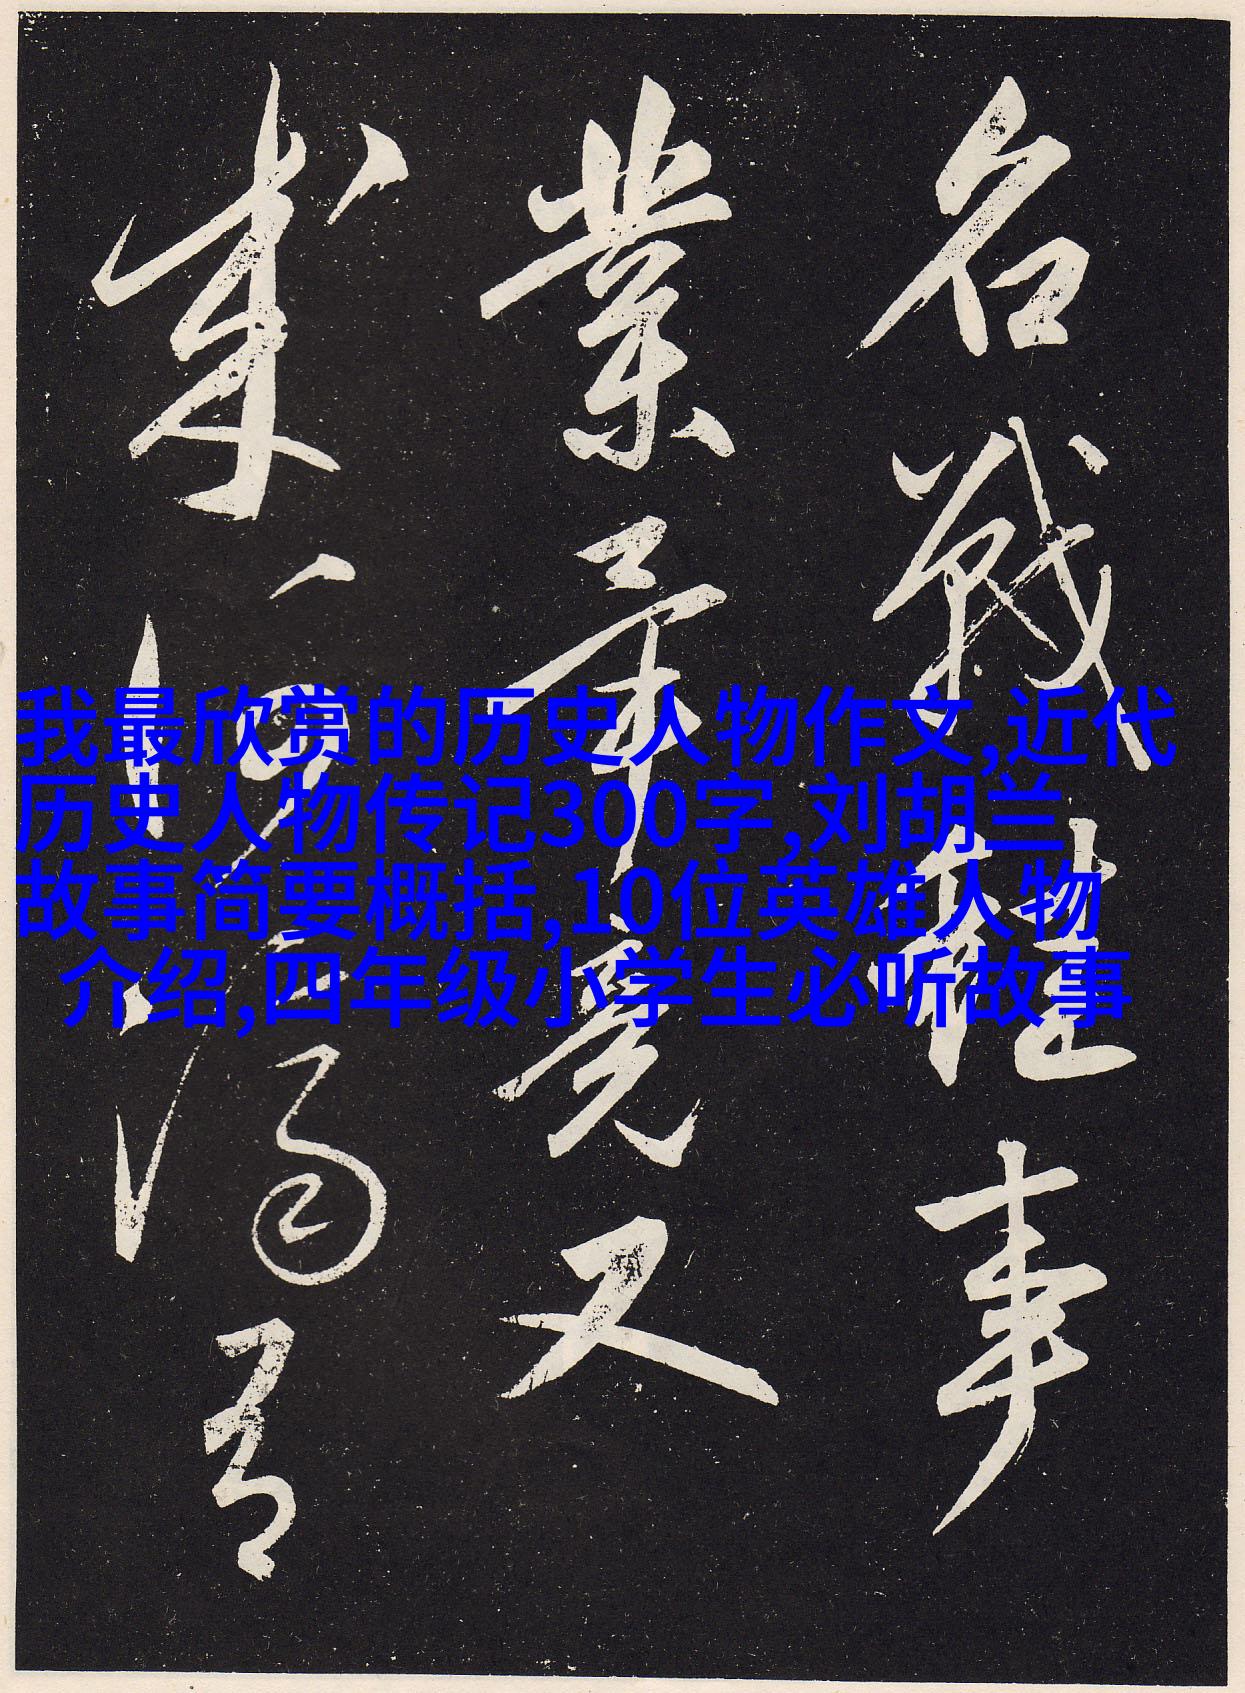 名戰事
業卒竟又
成何
我最欣赏的历史人物作文,近代
历史人物传记300字,刘胡兰
故事简要概括,10位英雄人物
介绍,四年级小学生必听故事